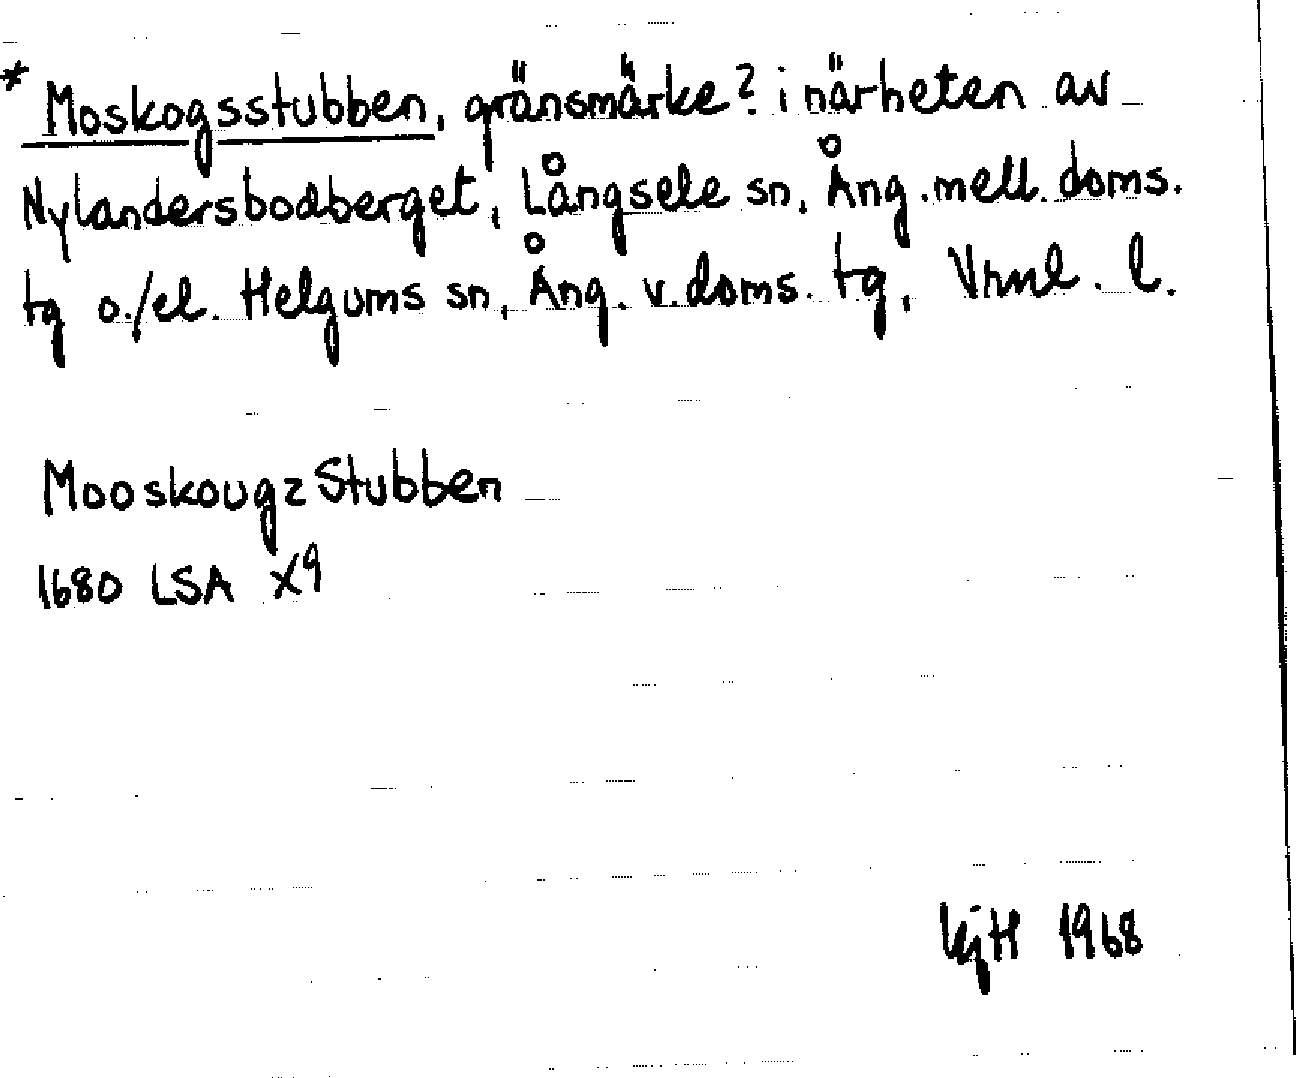 * Moskogsstubben, gränsmärke? i närheten av
Nylandersbodberget, Långsele sn, Ång. mell. doms.
tg o./el. Helgums sn, Ång. v. doms. tg, Vrnl. l.
MooskougzStubben
1680 LSA X9
KjH 1968